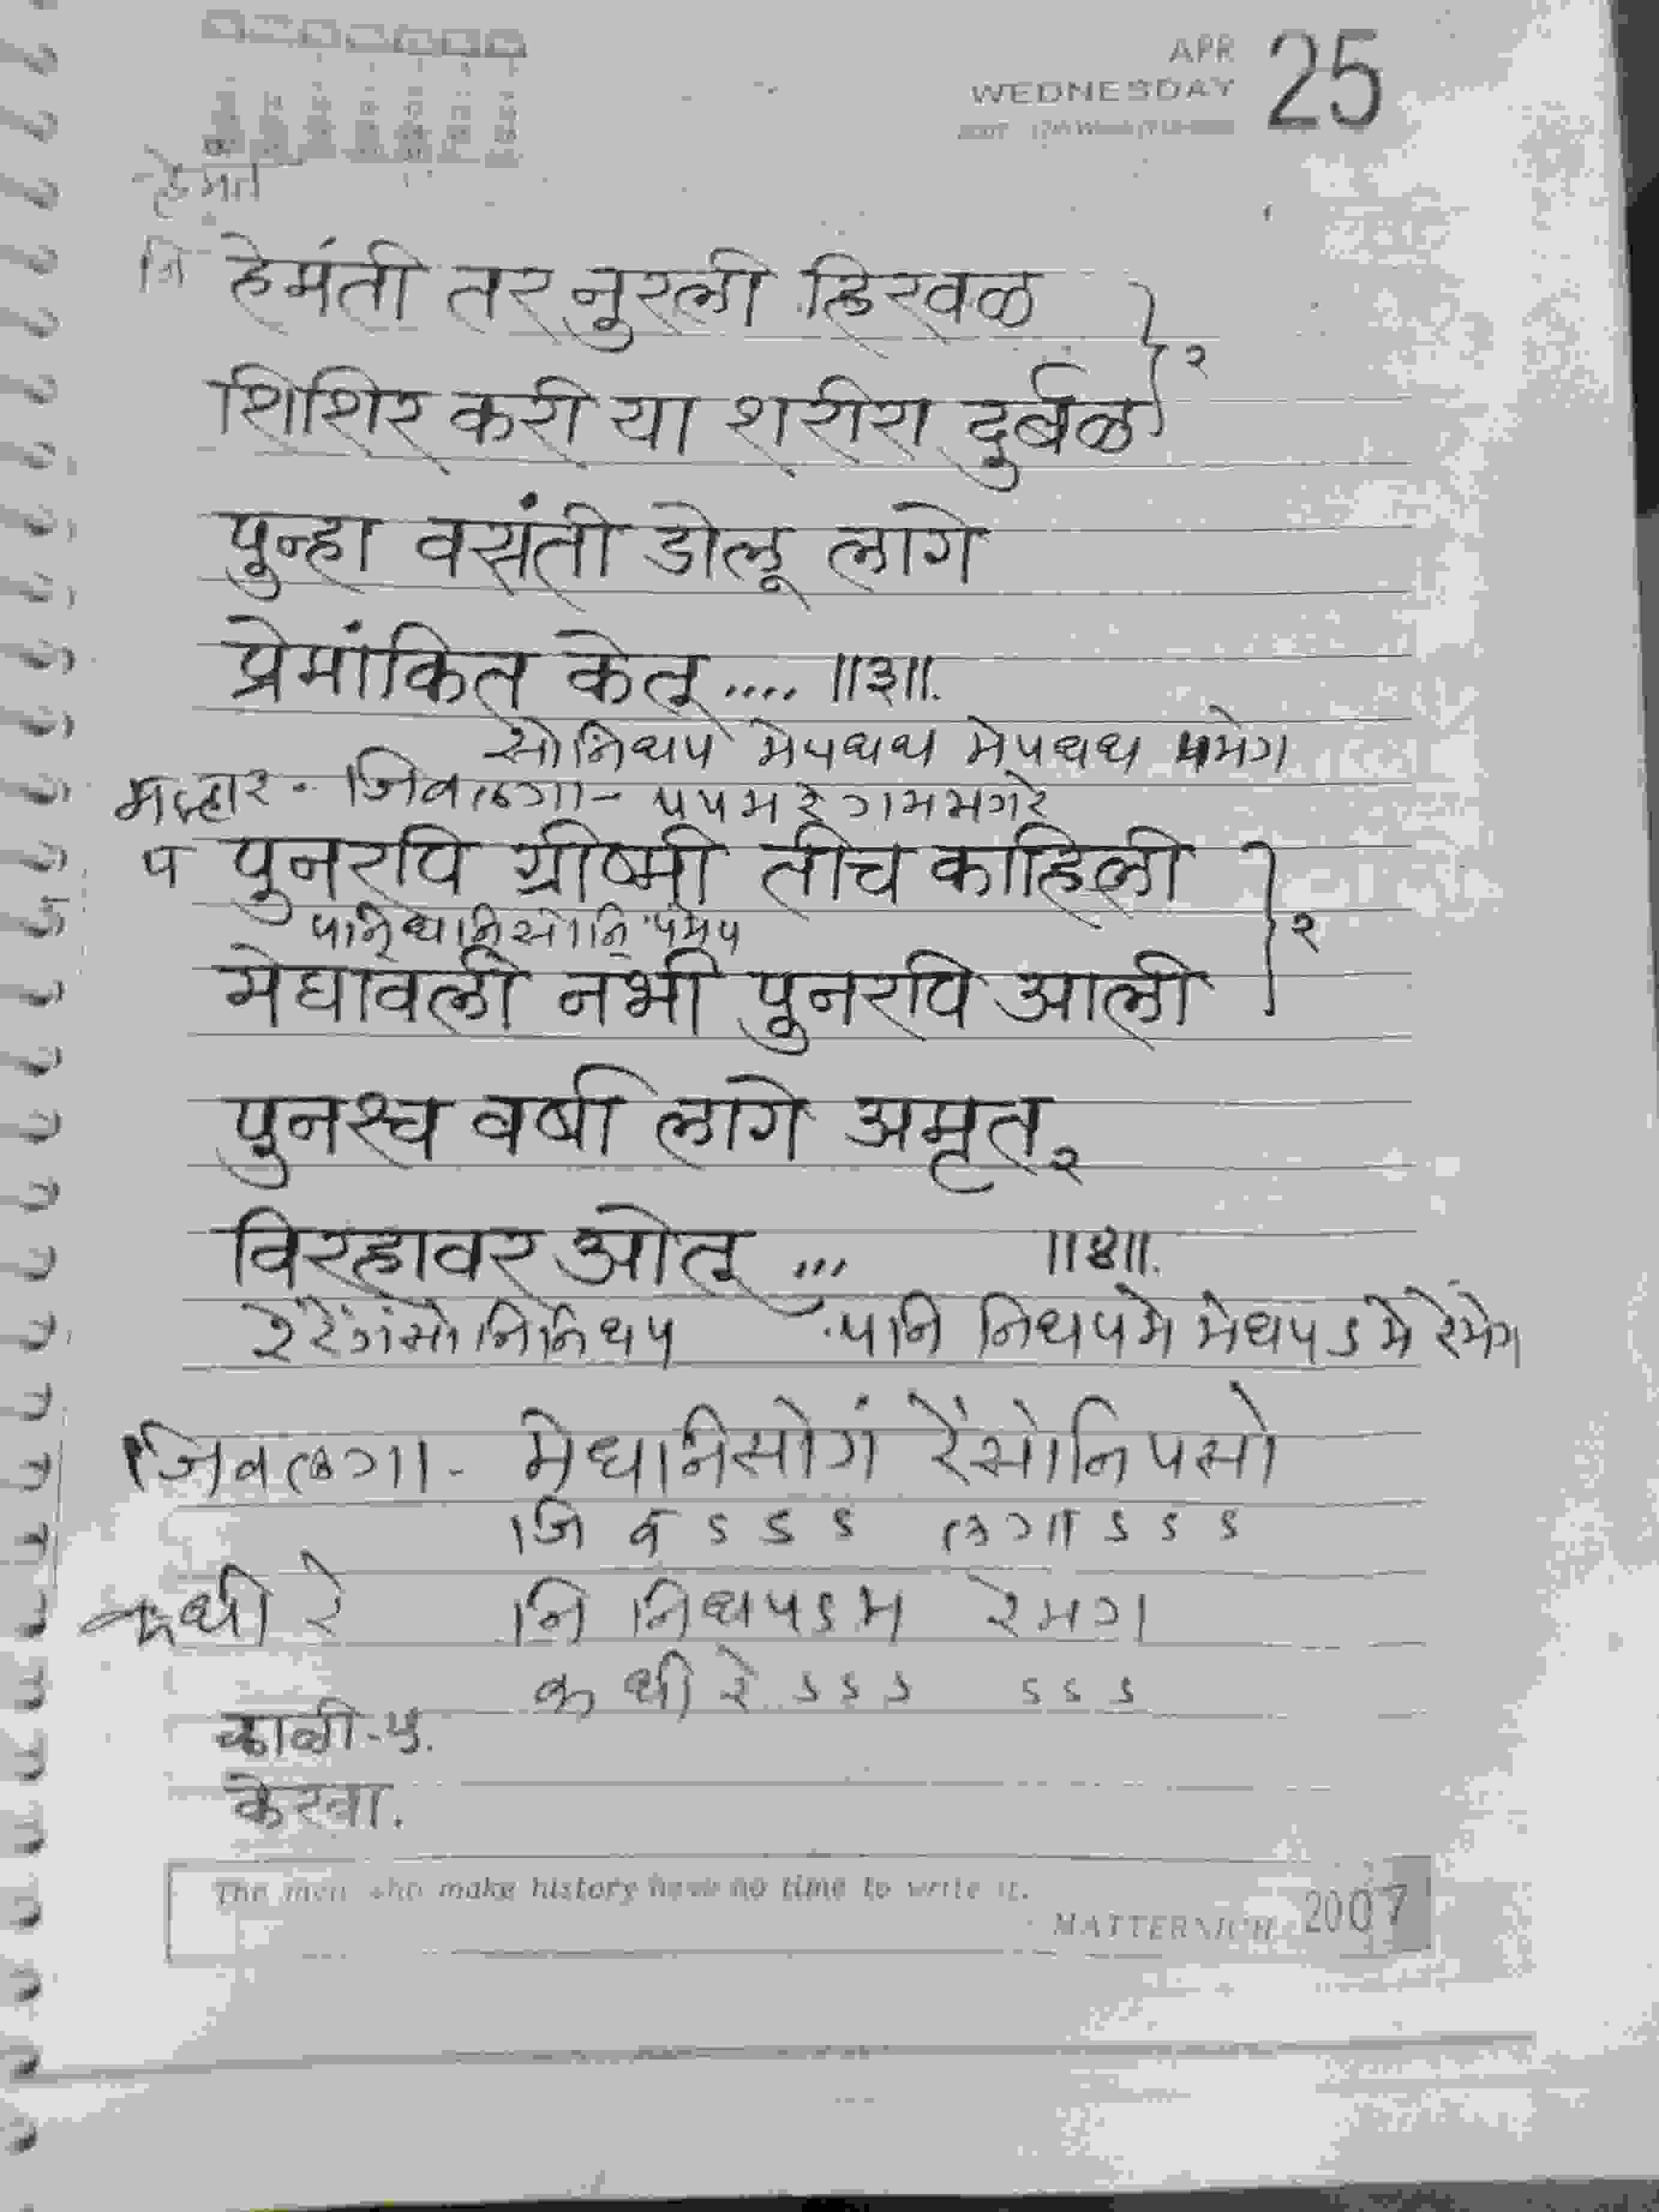 APR 25
WEDNESDAY
2007
हेमंत
नि हेमंती तर नुरली हिरवळ
शिशिर करी या शरीरा दुर्बळ } २
पुन्हा वसंती डोलू लागे
प्रेमांकित केतू .... ॥३॥.
सांनिधप मेपधध मेपधध पमेग
मल्हार - जिवलगा - पपमरेगममगरे
प पुनरपि ग्रीष्मी तीच काहिली
पानिधानिसांनि पमप
मेघावली नभी पुनरपि आली } २
पुनश्च वर्षा लागे अमृत २
विरहावर ओतू ... ॥४॥.
रेंरेंगंसांनिनिधप पनि निधपमे मेधपऽमे रेमेग
जिवलगा - मेधानिसांगं रेंसांनिपसां
जि व ऽ ऽ ऽ लगा ऽ ऽ ऽ
कधी रे नि निधपऽम रेमग
क धी रे ऽ ऽ ऽ ऽ ऽ ऽ
काळी-५.
केरवा.
The men who make history have no time to write it.
- MATTERNICH 2007